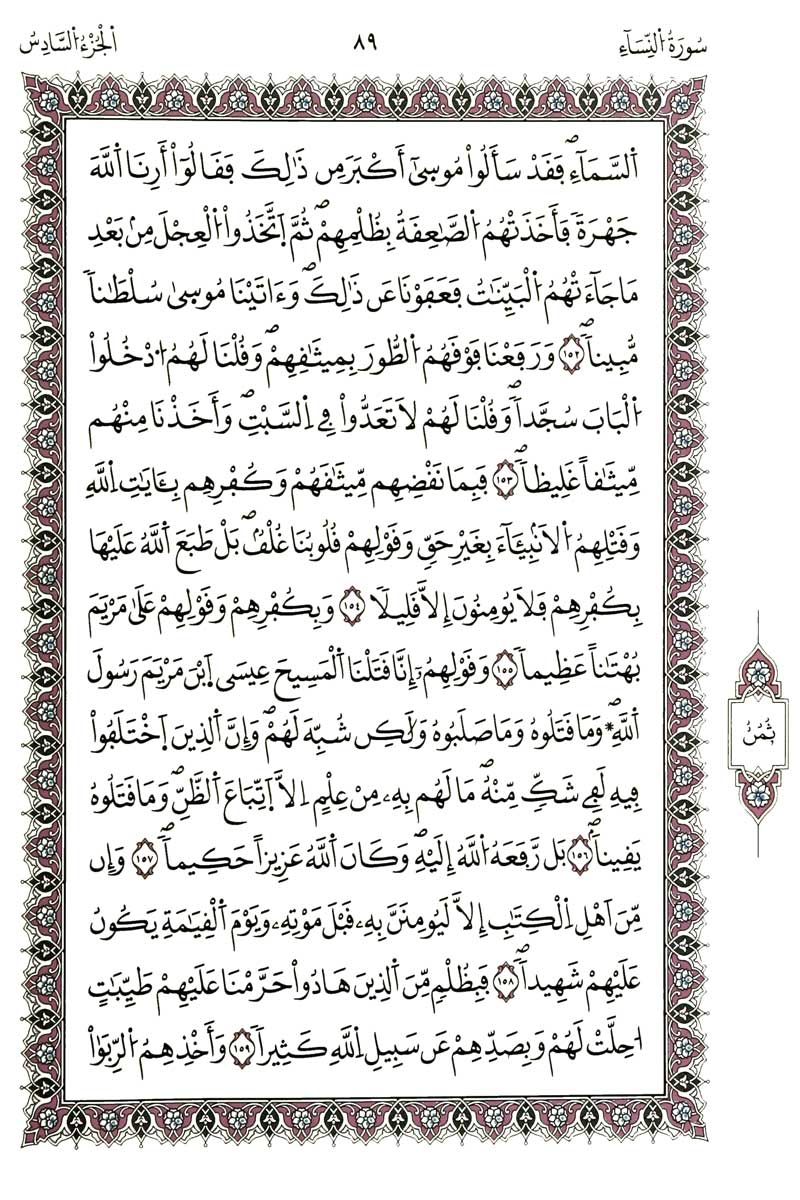 سُورَةُ اُ۬لنِّسَآءِ
٨٩
اَ۬لْجُزْءُ اُ۬لسَّادِسُ
اَ۬لسَّمَآءِۖ فَقَدْ سَأَلُواْ مُوسَىٰٓ أَكْبَرَ مِن ذَٰلِكَ فَقَالُوٓاْ أَرِنَا اَ۬للَّهَ
جَهْرَةٗ فَأَخَذَتْهُمُ اُ۬لصَّٰعِقَةُ بِظُلْمِهِمْۖ ثُمَّ اَ۪تَّخَذُواْ اُ۬لْعِجْلَ مِنۢ بَعْدِ
مَا جَآءَتْهُمُ اُ۬لْبَيِّنَٰتُ فَعَفَوْنَا عَن ذَٰلِكَۖ وَءَاتَيْنَا مُوسَىٰ سُلْطَٰناٗ
مُّبِيناٗۖ ١٥٢ وَرَفَعْنَا فَوْقَهُمُ اُ۬لطُّورَ بِمِيثَٰقِهِمْۖ وَقُلْنَا لَهُمُ اُ۟دْخُلُواْ
اُ۬لْبَابَ سُجَّداٗۖ وَقُلْنَا لَهُمْ لَا تَعَدُّواْ فِے اِ۬لسَّبْتِۖ وَأَخَذْنَا مِنْهُم
مِّيثَٰقاً غَلِيظاٗۖ ١٥٣ فَبِمَا نَقْضِهِم مِّيثَٰقَهُمْ وَكُفْرِهِم بِـَٔايَٰتِ اِ۬للَّهِ
وَقَتْلِهِمُ اُ۬لَانۢبِيَآءَ بِغَيْرِ حَقّٖ وَقَوْلِهِمْ قُلُوبُنَا غُلْفُۢۖ بَلْ طَبَعَ اَ۬للَّهُ عَلَيْهَا
بِكُفْرِهِمْ فَلَا يُومِنُونَ إِلَّا قَلِيلاٗ ١٥٤ وَبِكُفْرِهِمْ وَقَوْلِهِمْ عَلَىٰ مَرْيَمَ
بُهْتَٰناً عَظِيماٗ ١٥٥ وَقَوْلِهِمُۥٓ إِنَّا قَتَلْنَا اَ۬لْمَسِيحَ عِيسَى اَ۪بْنَ مَرْيَمَ رَسُولَ
اَ۬للَّهِۖ * وَمَا قَتَلُوهُ وَمَا صَلَبُوهُ وَلَٰكِن شُبِّهَ لَهُمْۖ وَإِنَّ اَ۬لذِينَ اَ۪خْتَلَفُواْ
فِيهِ لَفِے شَكّٖ مِّنْهُۖ مَا لَهُم بِهِۦ مِنْ عِلْمٍ اِلَّا اَ۪تِّبَاعَ اَ۬لظَّنِّۖ وَمَا قَتَلُوهُ
يَقِيناَۢۖ ١٥٦ بَل رَّفَعَهُ اُ۬للَّهُ إِلَيْهِۖ وَكَانَ اَ۬للَّهُ عَزِيزاً حَكِيماٗۖ ١٥٧ وَإِن
مِّنَ اَهْلِ اِ۬لْكِتَٰبِ إِلَّا لَيُومِنَنَّ بِهِۦ قَبْلَ مَوْتِهِۦ وَيَوْمَ اَ۬لْقِيَٰمَةِ يَكُونُ
عَلَيْهِمْ شَهِيداٗۖ ١٥٨ فَبِظُلْمٖ مِّنَ اَ۬لذِينَ هَادُواْ حَرَّمْنَا عَلَيْهِمْ طَيِّبَٰتٍ
ا۟حِلَّتْ لَهُمْ وَبِصَدِّهِمْ عَن سَبِيلِ اِ۬للَّهِ كَثِيراٗ ١٥٩ وَأَخْذِهِمُ اُ۬لرِّبَوٰاْ
ثُمُنُ